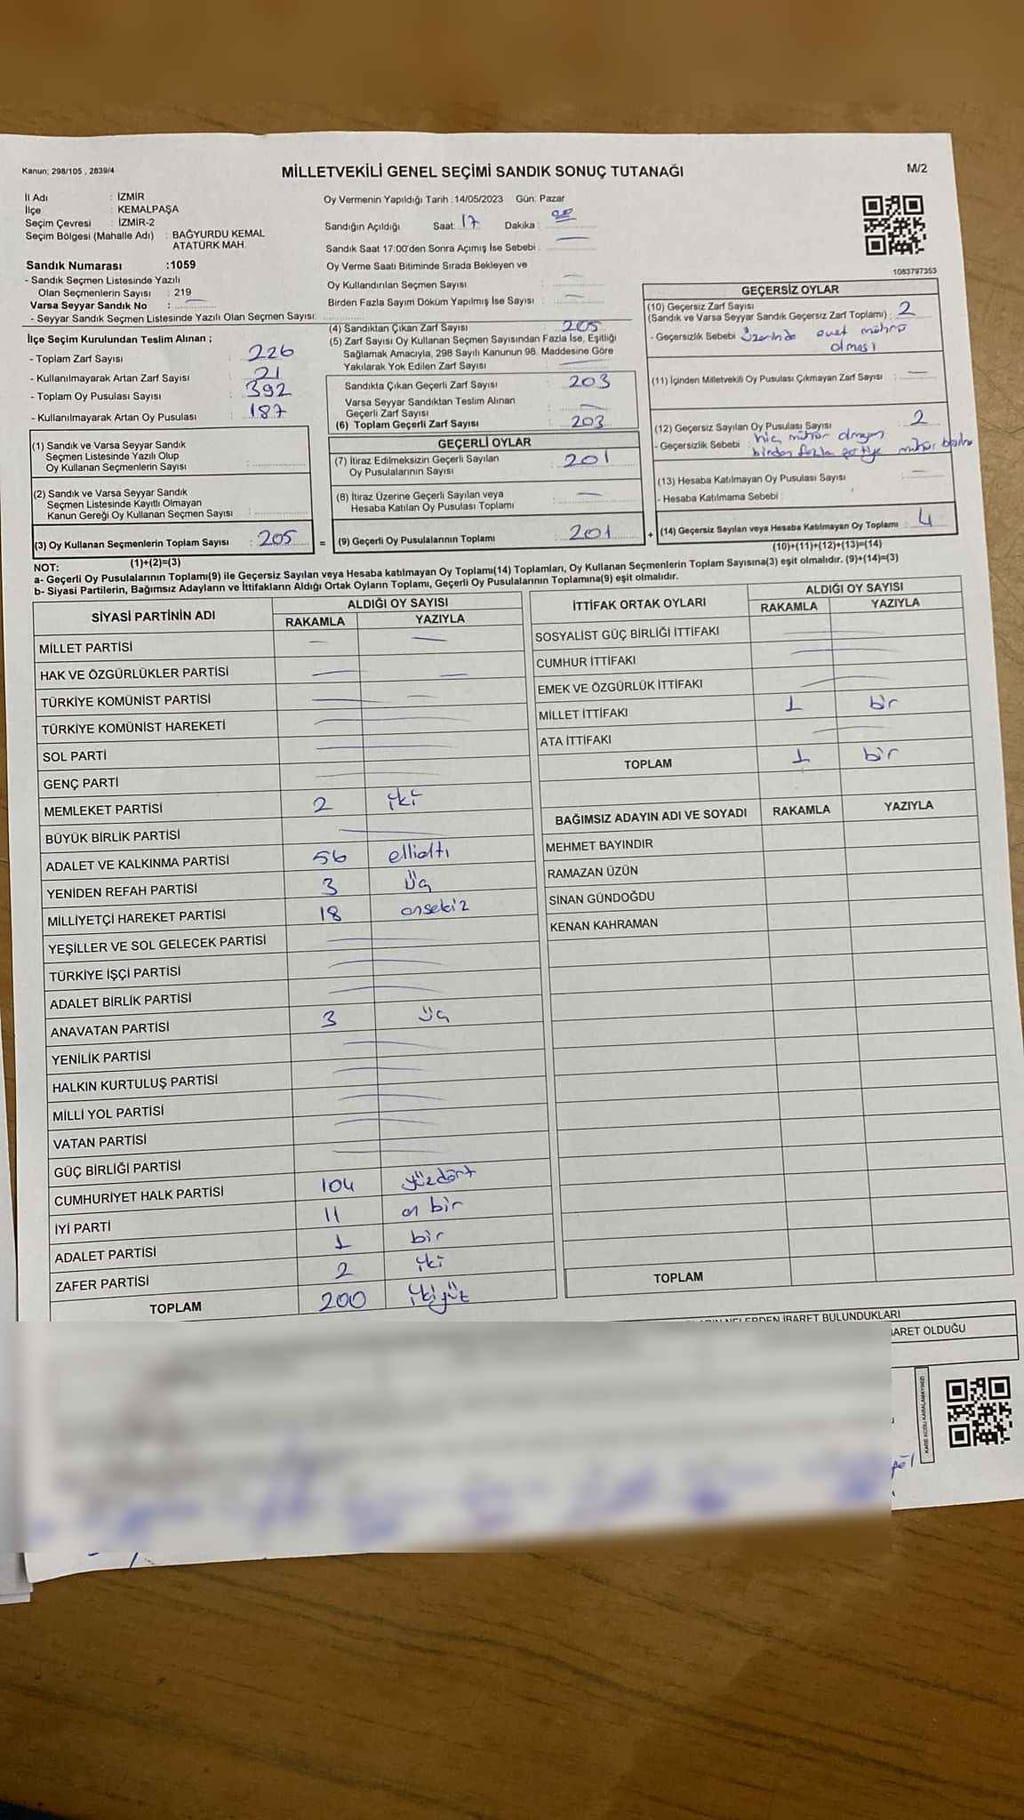 Kanun: 298/105 , 2839/4
MİLLETVEKİLİ GENEL SEÇİMİ SANDIK SONUÇ TUTANAĞI
M/2
İl Adı : İZMİR
İlçe : KEMALPAŞA
Seçim Çevresi : İZMİR-2
Seçim Bölgesi (Mahalle Adı) : BAĞYURDU KEMAL
ATATÜRK MAH.
Sandık Numarası :1059
- Sandık Seçmen Listesinde Yazılı
Olan Seçmenlerin Sayısı : 219
Varsa Seyyar Sandık No :
- Seyyar Sandık Seçmen Listesinde Yazılı Olan Seçmen Sayısı:
Oy Vermenin Yapıldığı Tarih : 14/05/2023 Gün: Pazar
Sandığın Açıldığı Saat: 17 Dakika :
Sandık Saat 17:00'den Sonra Açımış İse Sebebi :
Oy Verme Saati Bitiminde Sırada Bekleyen ve
Oy Kullandırılan Seçmen Sayısı :
Birden Fazla Sayım Döküm Yapılmış İse Sayısı :
1083797353
İlçe Seçim Kurulundan Teslim Alınan ;
- Toplam Zarf Sayısı : 226
- Kullanılmayarak Artan Zarf Sayısı : 21
- Toplam Oy Pusulası Sayısı : 392
- Kullanılmayarak Artan Oy Pusulası : 187
(1) Sandık ve Varsa Seyyar Sandık
Seçmen Listesinde Yazılı Olup
Oy Kullanan Seçmenlerin Sayısı :
(2) Sandık ve Varsa Seyyar Sandık
Seçmen Listesinde Kayıtlı Olmayan
Kanun Gereği Oy Kullanan Seçmen Sayısı :
(3) Oy Kullanan Seçmenlerin Toplam Sayısı : 205 =
(1)+(2)=(3)
(4) Sandıktan Çıkan Zarf Sayısı : 205
(5) Zarf Sayısı Oy Kullanan Seçmen Sayısından Fazla İse, Eşitliği
Sağlamak Amacıyla, 298 Sayılı Kanunun 98. Maddesine Göre
Yakılarak Yok Edilen Zarf Sayısı :
Sandıkta Çıkan Geçerli Zarf Sayısı : 203
Varsa Seyyar Sandıktan Teslim Alınan
Geçerli Zarf Sayısı :
(6) Toplam Geçerli Zarf Sayısı : 203
GEÇERLİ OYLAR
(7) İtiraz Edilmeksizin Geçerli Sayılan
Oy Pusulalarının Sayısı : 201
(8) İtiraz Üzerine Geçerli Sayılan veya
Hesaba Katılan Oy Pusulası Toplamı :
(9) Geçerli Oy Pusulalarının Toplamı : 201 +
GEÇERSİZ OYLAR
(10) Geçersiz Zarf Sayısı
(Sandık ve Varsa Seyyar Sandık Geçersiz Zarf Toplamı) : 2
- Geçersizlik Sebebi : üzerinde evet mührü
olması
(11) İçinden Milletvekili Oy Pusulası Çıkmayan Zarf Sayısı :
(12) Geçersiz Sayılan Oy Pusulası Sayısı : 2
- Geçersizlik Sebebi : hiç mühür olmayan
birden fazla partiye mühür
(13) Hesaba Katılmayan Oy Pusulası Sayısı :
- Hesaba Katılmama Sebebi :
(14) Geçersiz Sayılan veya Hesaba Katılmayan Oy Toplamı : 4
(10)+(11)+(12)+(13)=(14)
NOT:
a- Geçerli Oy Pusulalarının Toplamı(9) ile Geçersiz Sayılan veya Hesaba Katılmayan Oy Toplamı(14) Toplamları, Oy Kullanan Seçmenlerin Toplam Sayısına(3) eşit olmalıdır. (9)+(14)=(3)
b- Siyasi Partilerin, Bağımsız Adayların ve İttifakların Aldığı Ortak Oyların Toplamı, Geçerli Oy Pusulalarının Toplamına(9) eşit olmalıdır.
SİYASİ PARTİNİN ADI ALDIĞI OY SAYISI
RAKAMLA YAZIYLA
MİLLET PARTİSİ
HAK VE ÖZGÜRLÜKLER PARTİSİ
TÜRKİYE KOMÜNİST PARTİSİ
TÜRKİYE KOMÜNİST HAREKETİ
SOL PARTİ
GENÇ PARTİ
MEMLEKET PARTİSİ 2 iki
BÜYÜK BİRLİK PARTİSİ
ADALET VE KALKINMA PARTİSİ 56 ellialtı
YENİDEN REFAH PARTİSİ 3 üç
MİLLİYETÇİ HAREKET PARTİSİ 18 onsekiz
YEŞİLLER VE SOL GELECEK PARTİSİ
TÜRKİYE İŞÇİ PARTİSİ
ADALET BİRLİK PARTİSİ
ANAVATAN PARTİSİ 3 üç
YENİLİK PARTİSİ
HALKIN KURTULUŞ PARTİSİ
MİLLİ YOL PARTİSİ
VATAN PARTİSİ
GÜÇ BİRLİĞİ PARTİSİ
CUMHURİYET HALK PARTİSİ 104 yüzdört
İYİ PARTİ 11 on bir
ADALET PARTİSİ 1 bir
ZAFER PARTİSİ 2 iki
TOPLAM 200 ikiyüz
İTTİFAK ORTAK OYLARI ALDIĞI OY SAYISI
RAKAMLA YAZIYLA
SOSYALİST GÜÇ BİRLİĞİ İTTİFAKI
CUMHUR İTTİFAKI
EMEK VE ÖZGÜRLÜK İTTİFAKI
MİLLET İTTİFAKI 1 bir
ATA İTTİFAKI
TOPLAM 1 bir
BAĞIMSIZ ADAYIN ADI VE SOYADI RAKAMLA YAZIYLA
MEHMET BAYINDIR
RAMAZAN ÜZÜN
SİNAN GÜNDOĞDU
KENAN KAHRAMAN
TOPLAM
İBARET BULUNDUKLARI
OLDUĞU